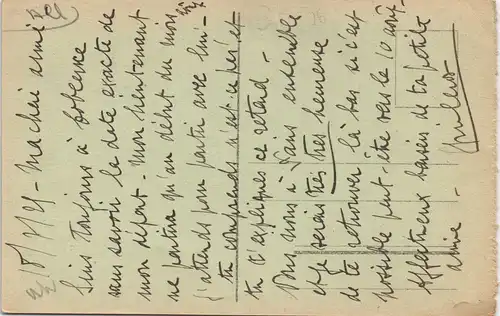 Ma chérie aimée
Suis toujours à Coblence
sans savoir la date exacte de
mon départ - mon lieutenant
ne partira qu'au début du mois
j'attends pour partir avec lui -
tu comprends n'est ce pas et
tu t'expliques ce retard -
nous à Paris ensemble
et je serais très très heureuse
de te retrouver là bas si c'est
possible peut-être vers le 10 août
Affectueux baisers de ta petite
amie -